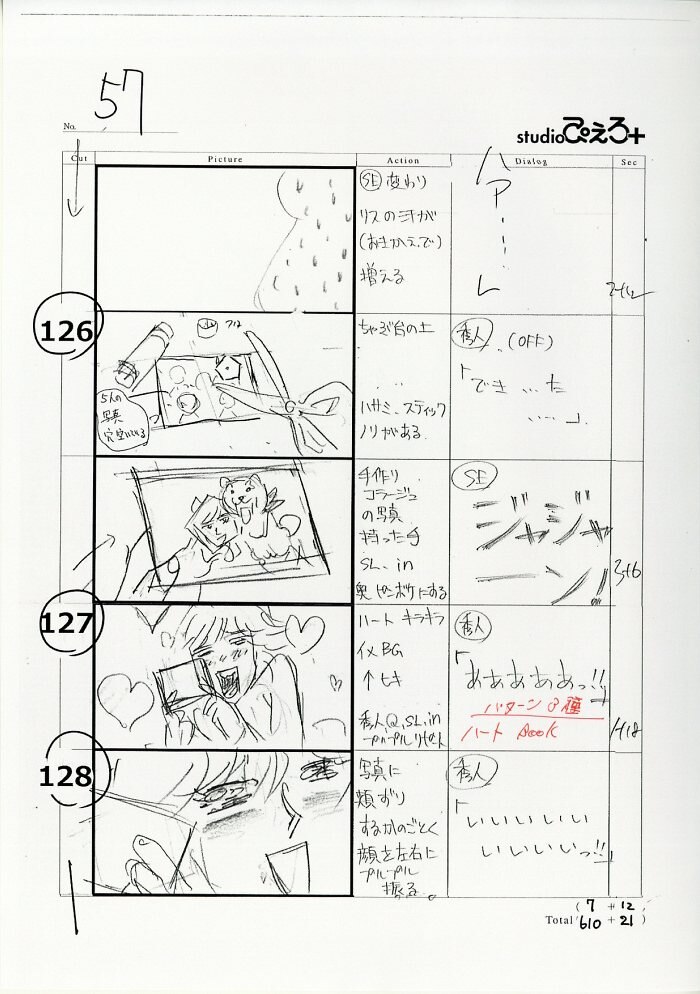 57
No.
studioぴえろ+
Cut Picture Action Dialog Sec
SE 変わり
リスの汗が
(おきかえで)
増える
ハ
P
し
2+12
126
フタ
5人の
写真
穴空いている
ちゃぶ台の上
ハサミ、スティック
ノリがある
秀人 (OFF)
「でき…た
……」
手作り
コラージュ
の写真
持った手
SL.in
奥ピンボケにする
SE
ジャジャ
ーン!
3+6
127
ハート キラキラ
イメBG
↑ヒキ
秀人Q.SL.in
プルプルリピート
秀人
「あああああっ!!」
パターン8種
ハート BOOK
1+18
128
写真に
頬ずり
するかのごとく
顔を左右に
プルプル
振る。
秀人
「いいいいいい
いいいいっ!!」
( 7 + 12 )
Total ( 610 + 21 )